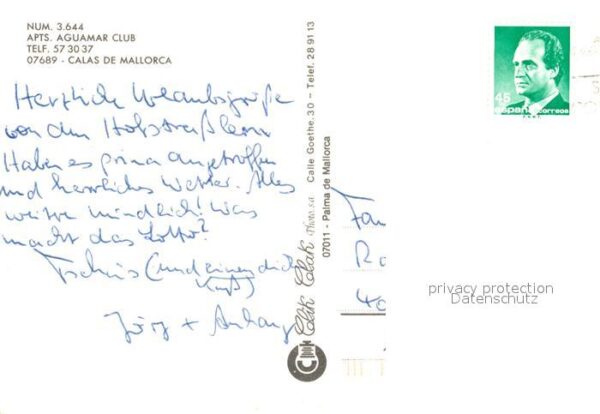 NUM. 3.644
APTS. AGUAMAR CLUB
TELF. 57 30 37
07689 - CALAS DE MALLORCA
Herzliche Urlaubsgrüße
von den Holsträßlern
Haben es prima angetroffen
und herrliches Wetter. Alles
weitere mündlich! Was
macht das Lotto?
Tschüs (und einen dicken
Kuß)
Jörg + Anhang
Clik Clak Photo s.a. Calle Goethe, 30 - Telef. 28 91 13
07011 - Palma de Mallorca
45
españa correos
Fam
Ro
40
privacy protection
Datenschutz